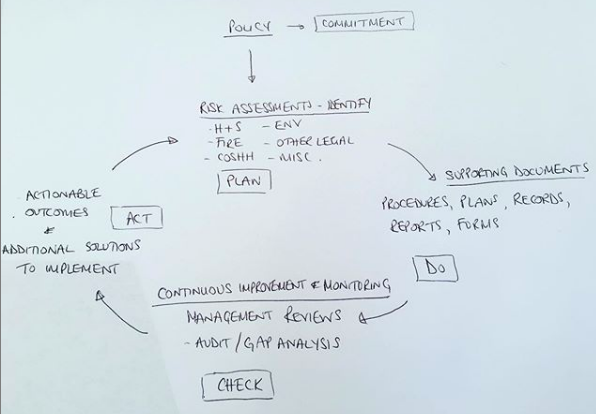 POLICY → COMMITMENT
RISK ASSESSMENTS - IDENTIFY
- H+S - ENV
- FIRE - OTHER LEGAL
- COSHH - MISC.
PLAN
SUPPORTING DOCUMENTS
PROCEDURES, PLANS, RECORDS,
REPORTS, FORMS
DO
CONTINUOUS IMPROVEMENT & MONITORING
MANAGEMENT REVIEWS
- AUDIT/GAP ANALYSIS
CHECK
. ACTIONABLE
. OUTCOMES
&
ADDITIONAL SOLUTIONS
TO IMPLEMENT
ACT